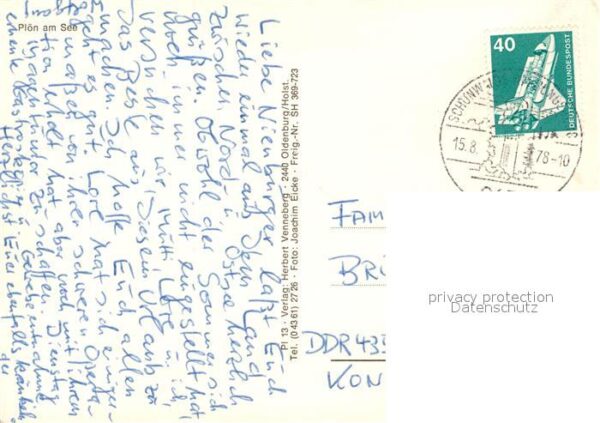 Plön am See
Liebe Nienburger laßt Euch
wieder einmal aus dem Land
zwischen Nord- u. Ostsee herzlich
grüßen. Obwohl der Sommer sich
noch immer nicht eingestellt hat,
versuchen wir, Mutti Lore u. ich
das Beste aus diesem Urlaub zu
machen. Ich hoffe Euch allen
geht es gut. Lore hat sich einiger-
maßen von ihrer schweren Opera-
tion erholt hat aber noch mit ihrem
zu schaffen. Dienstag
Herzlichst Eure ebenfalls
der
Pl 13 · Verlag: Herbert Venneberg · 2440 Oldenburg/Holst.
Tel. (0 43 61) 27 26 · Foto: Joachim Eicke · Freig.-Nr.: SH 369-723
40
DEUTSCHE BUNDESPOST
15.8.
78-10
FAM
BRI
DDR 435
KON
privacy protection
Datenschutz